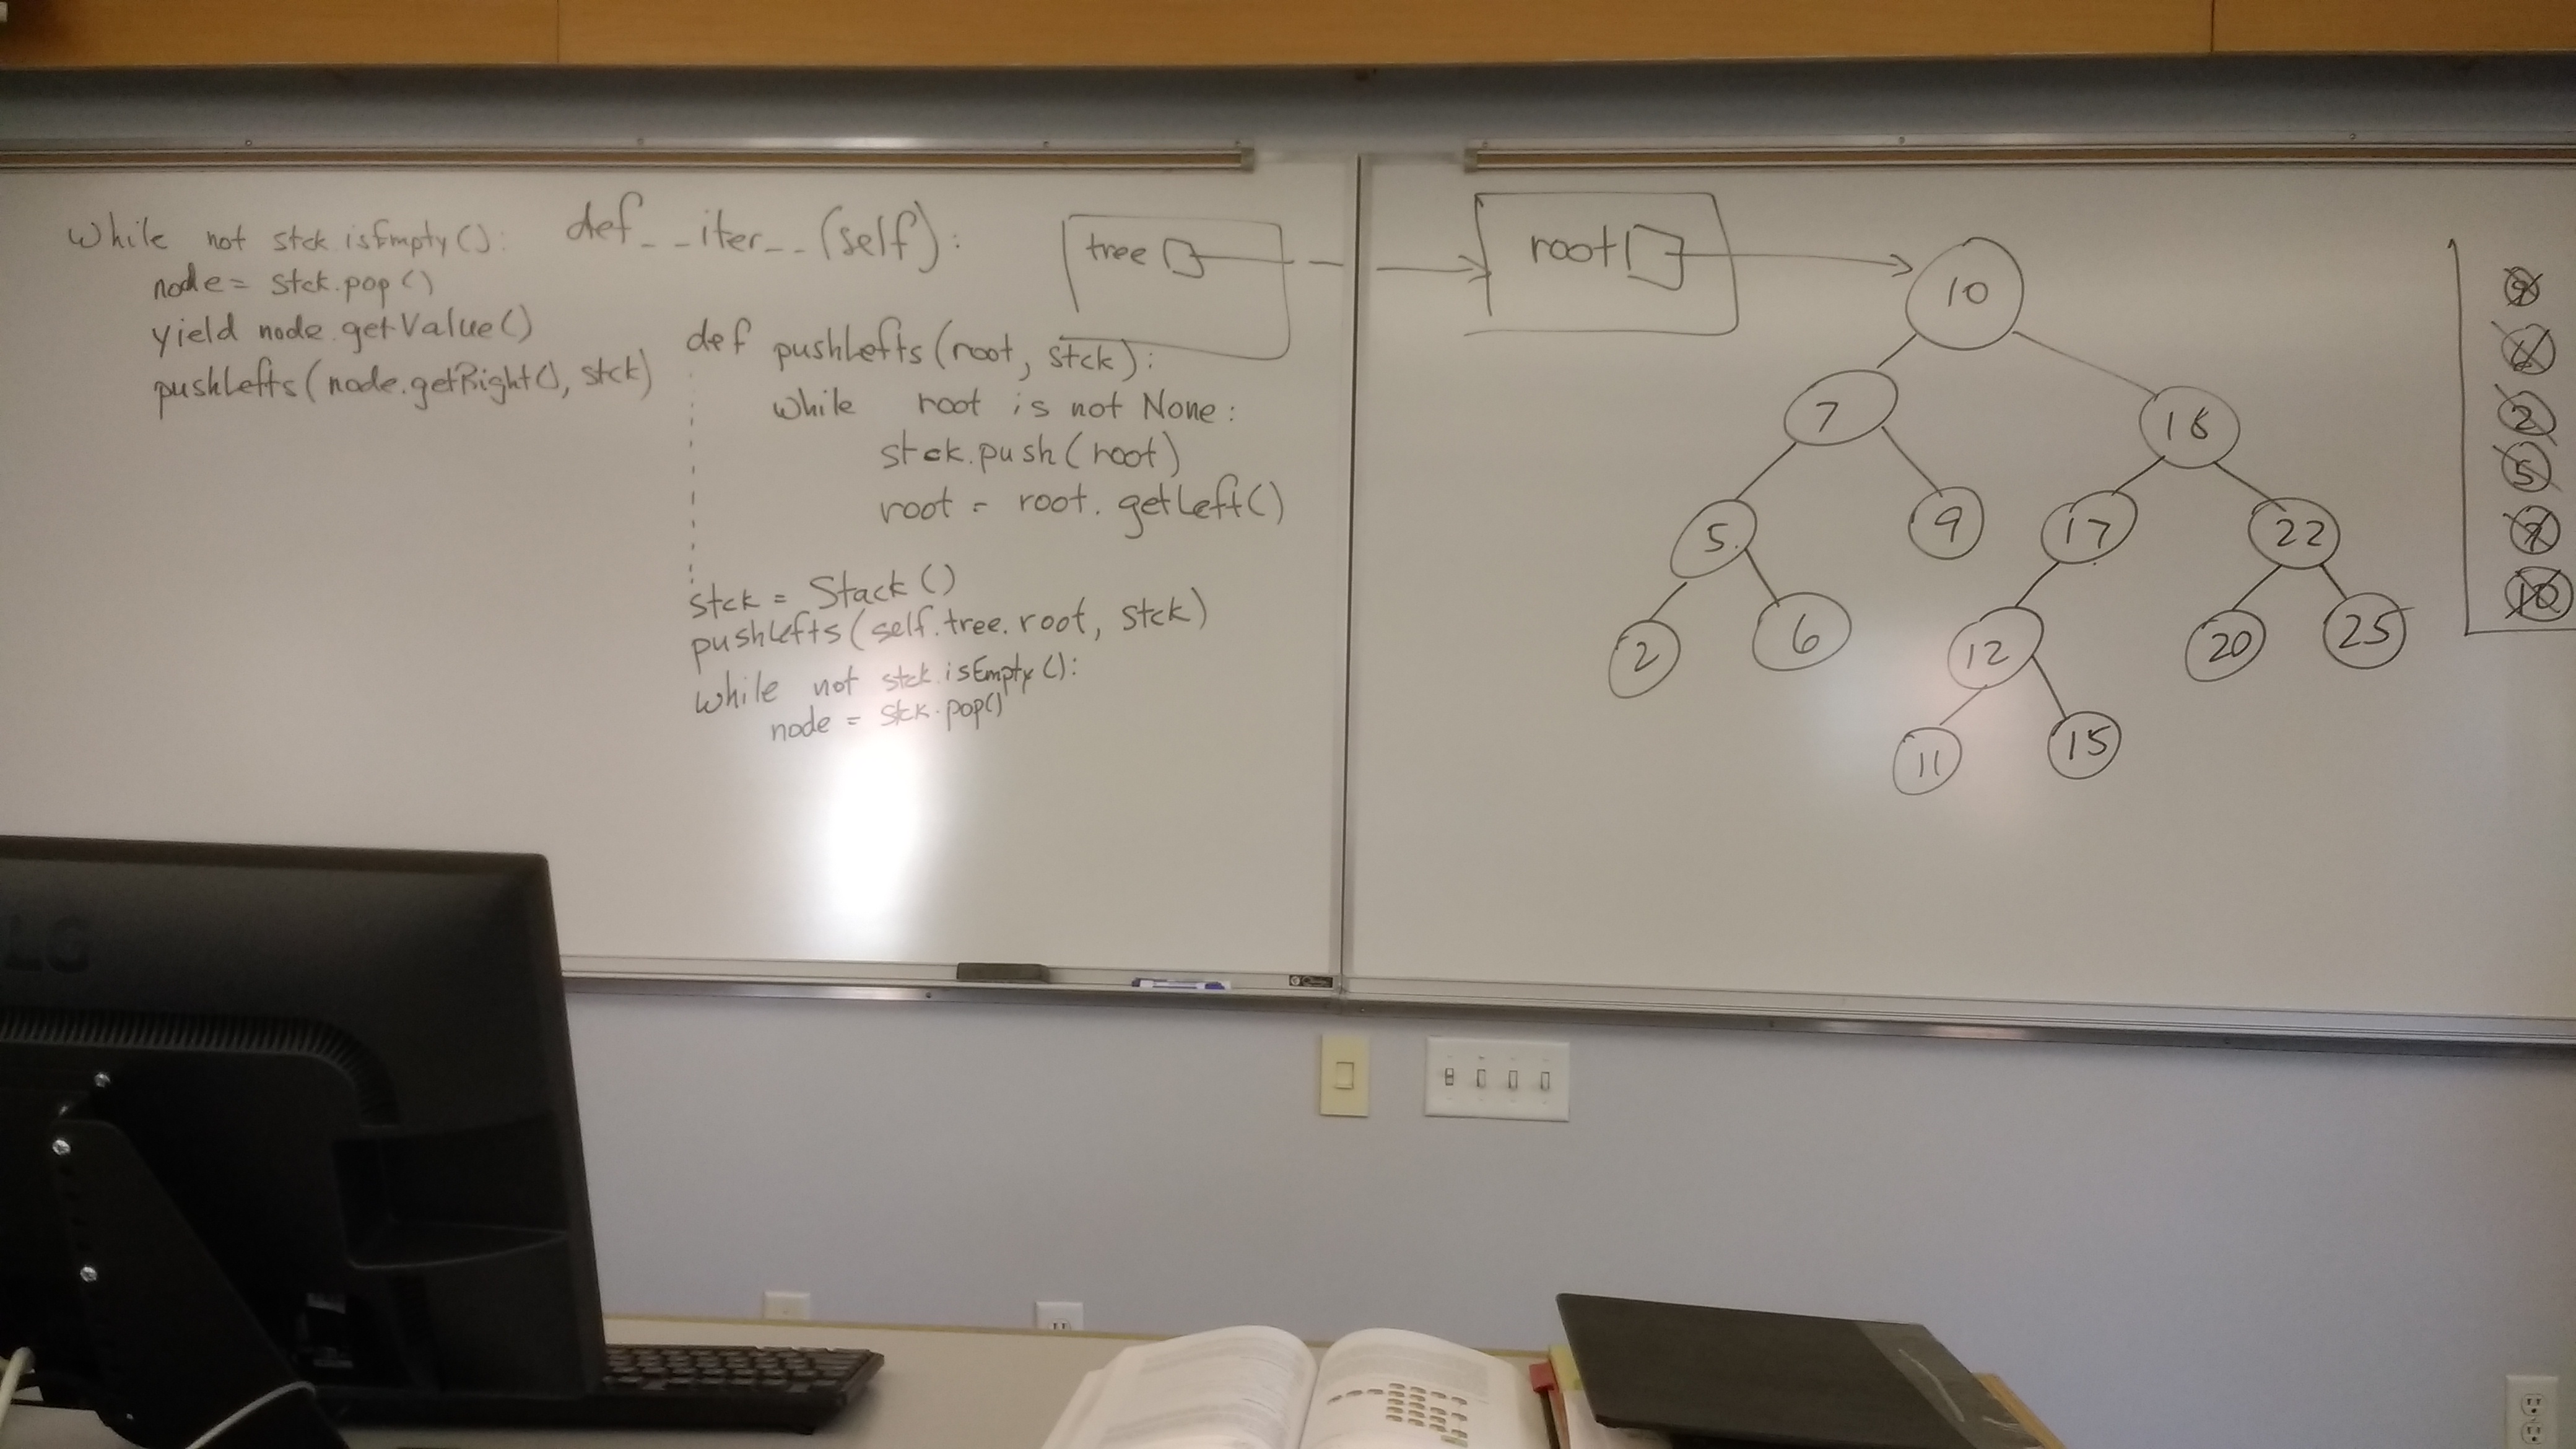 while not stck.isEmpty():
node = stck.pop()
yield node.getValue()
pushLefts(node.getRight(), stck)
def __iter__(self):
def pushLefts(root, stck):
while root is not None:
stck.push(root)
root = root.getLeft()
stck = Stack()
pushLefts(self.tree.root, stck)
while not stck.isEmpty():
node = stck.pop()
tree
root
10
7
18
5
9
17
22
2
6
12
20
25
11
15
9
6
2
5
7
10
LG